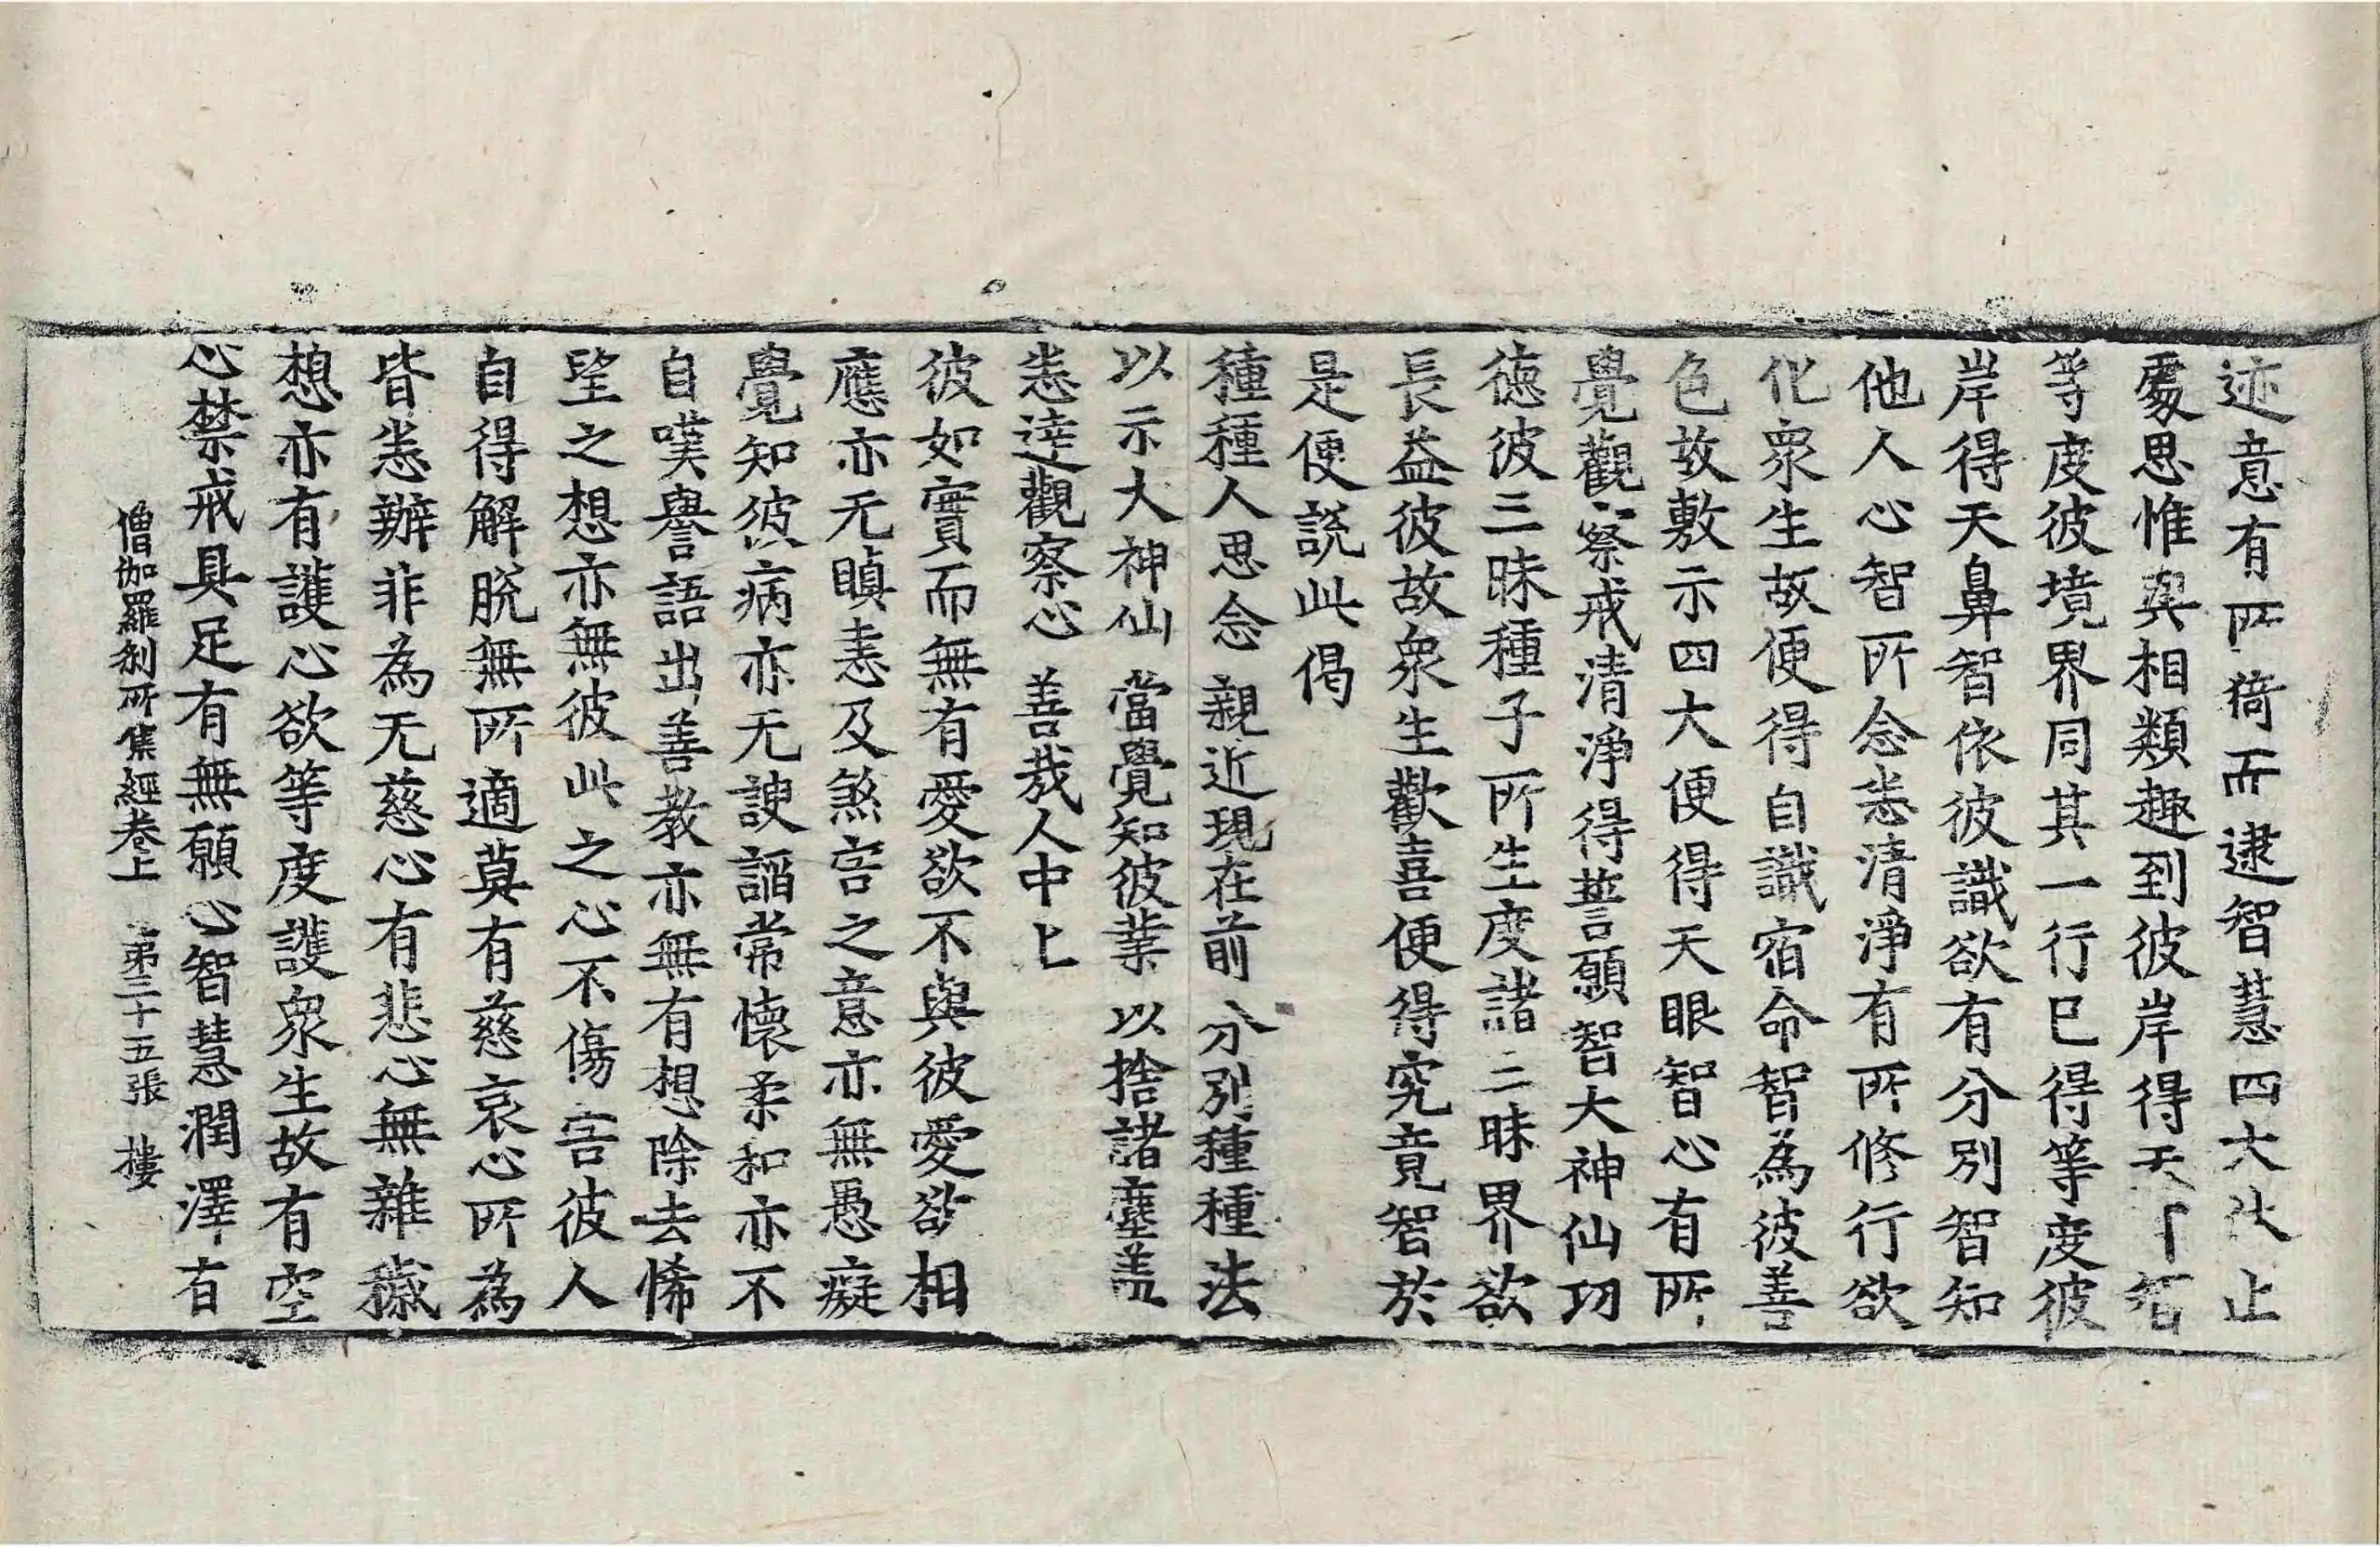 迹意有所猗而逮智慧四大止
處思惟與相類趣到彼岸得天智
等度彼境界同其一行已得等度彼
岸得天鼻智依彼識欲有分別智知
他人心智所念恙清淨有所修行欲
化眾生故便得自識宿命智為彼善
色故敷示四大便得天眼智心有所
覺觀察戒清淨得誓願智大神仙功
德彼三昧種子所生度諸三昧界欲
長益彼故眾生歡喜便得究竟智於
是便說此偈
種種人思念 親近現在前 分別種種法
以示大神仙 當覺知彼業 以捨諸塵盖
恙逹觀察心 善哉人中上
彼如實而無有愛欲不與彼愛欲相
應亦无瞋恚及煞害之意亦無愚癡
覺知彼病亦无諛謟常懷柔和亦不
自嘆譽語出善教亦無有想除去悕
望之想亦無彼此之心不傷害彼人
自得解脫無所適莫有慈哀心所為
皆恙辦非為无慈心有悲心無雜穢
想亦有護心欲等度護眾生故有空
心禁戒具足有無願心智慧潤澤有
僧伽羅刹所集經卷上 第三十五張 樓